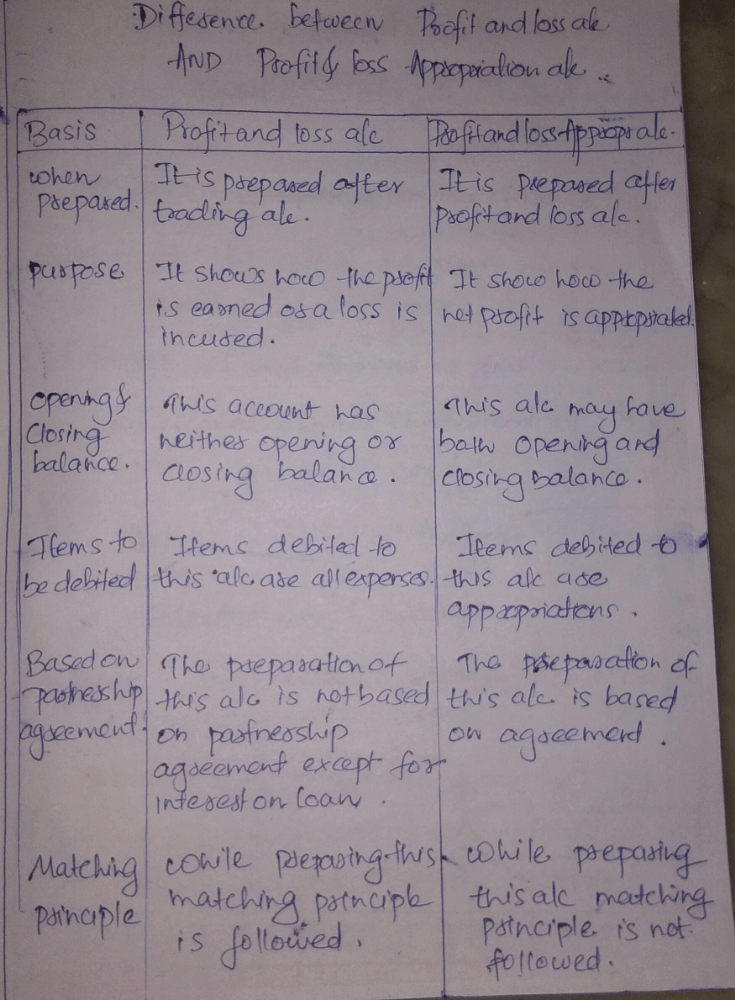 Difference between Profit and loss a/c
AND Profit & loss Appropriation a/c
Basis
Profit and loss a/c
Profit and loss Approps a/c.
when
prepared.
It is prepared after
trading a/c.
It is prepared after
profit and loss a/c.
purpose
It shows how the profit
is earned or a loss is
incured.
It show how the
net profit is appropriated.
opening &
closing
balance.
This account has
neither opening or
closing balance.
This a/c may have
both opening and
closing balance.
Items to
be debited
Items debited to
this a/c are all expenses.
Items debited to
this a/c are
appropriations.
Based on
partnership
agreement.
The preparation of
this a/c is not based
on partnership
agreement except for
interest on loan.
The preparation of
this a/c is based
on agreement.
Matching
principle
While preparing this
matching principle
is followed.
While preparing
this a/c matching
principle is not
followed.